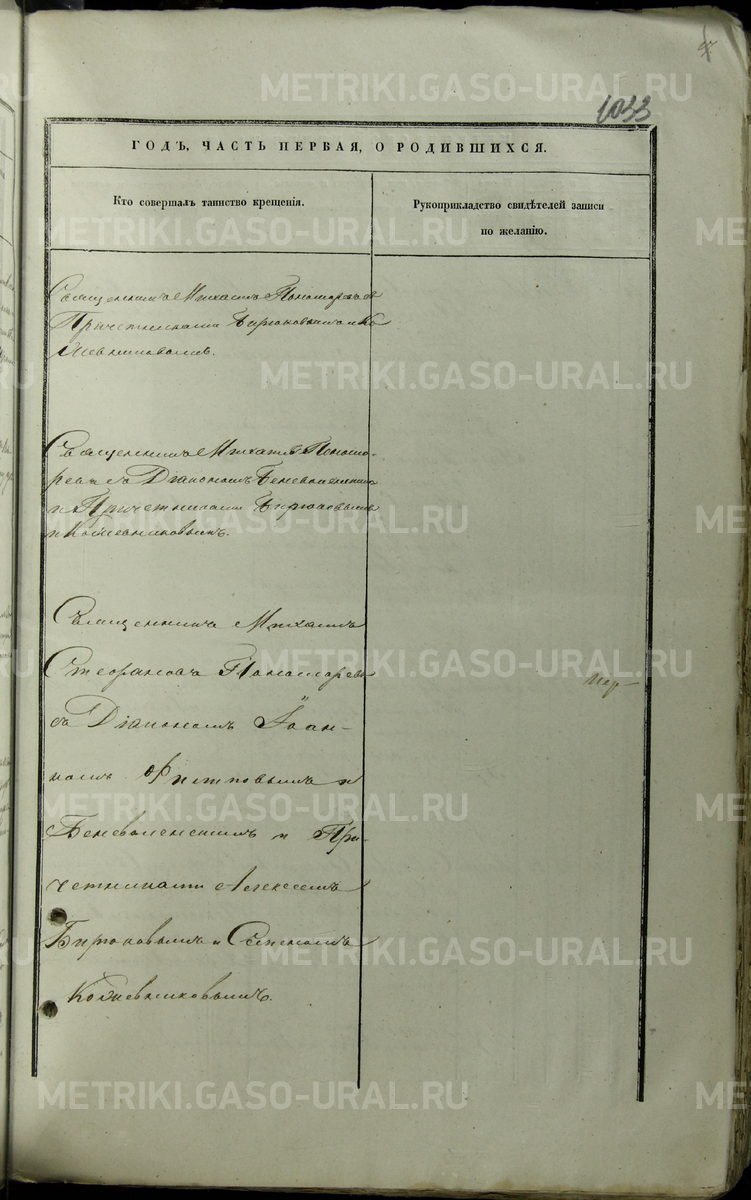 1033
ГОДЪ, ЧАСТЬ ПЕРВАЯ, О РОДИВШИХСЯ.
Кто совершалъ таинство крещенія.
Рукоприкладство свидѣтелей записи
по желанію.
Священникъ Михаилъ Пономаревъ съ
Причетниками Бирюковымъ и Ко
жевниковымъ.
Священникъ Михаилъ Понома-
ревъ съ Діакономъ Беневоленскимъ
и Причетниками Бирюковымъ
и Кожевниковымъ.
Священникъ Михаилъ
Стефановъ Пономаревъ
съ Діакономъ Іоан-
номъ Филиповымъ
Беневоленскимъ и При-
четниками Алексеемъ
Бирюковымъ и Семеномъ
Кожевниковымъ.
METRIKI.GASO-URAL.RU